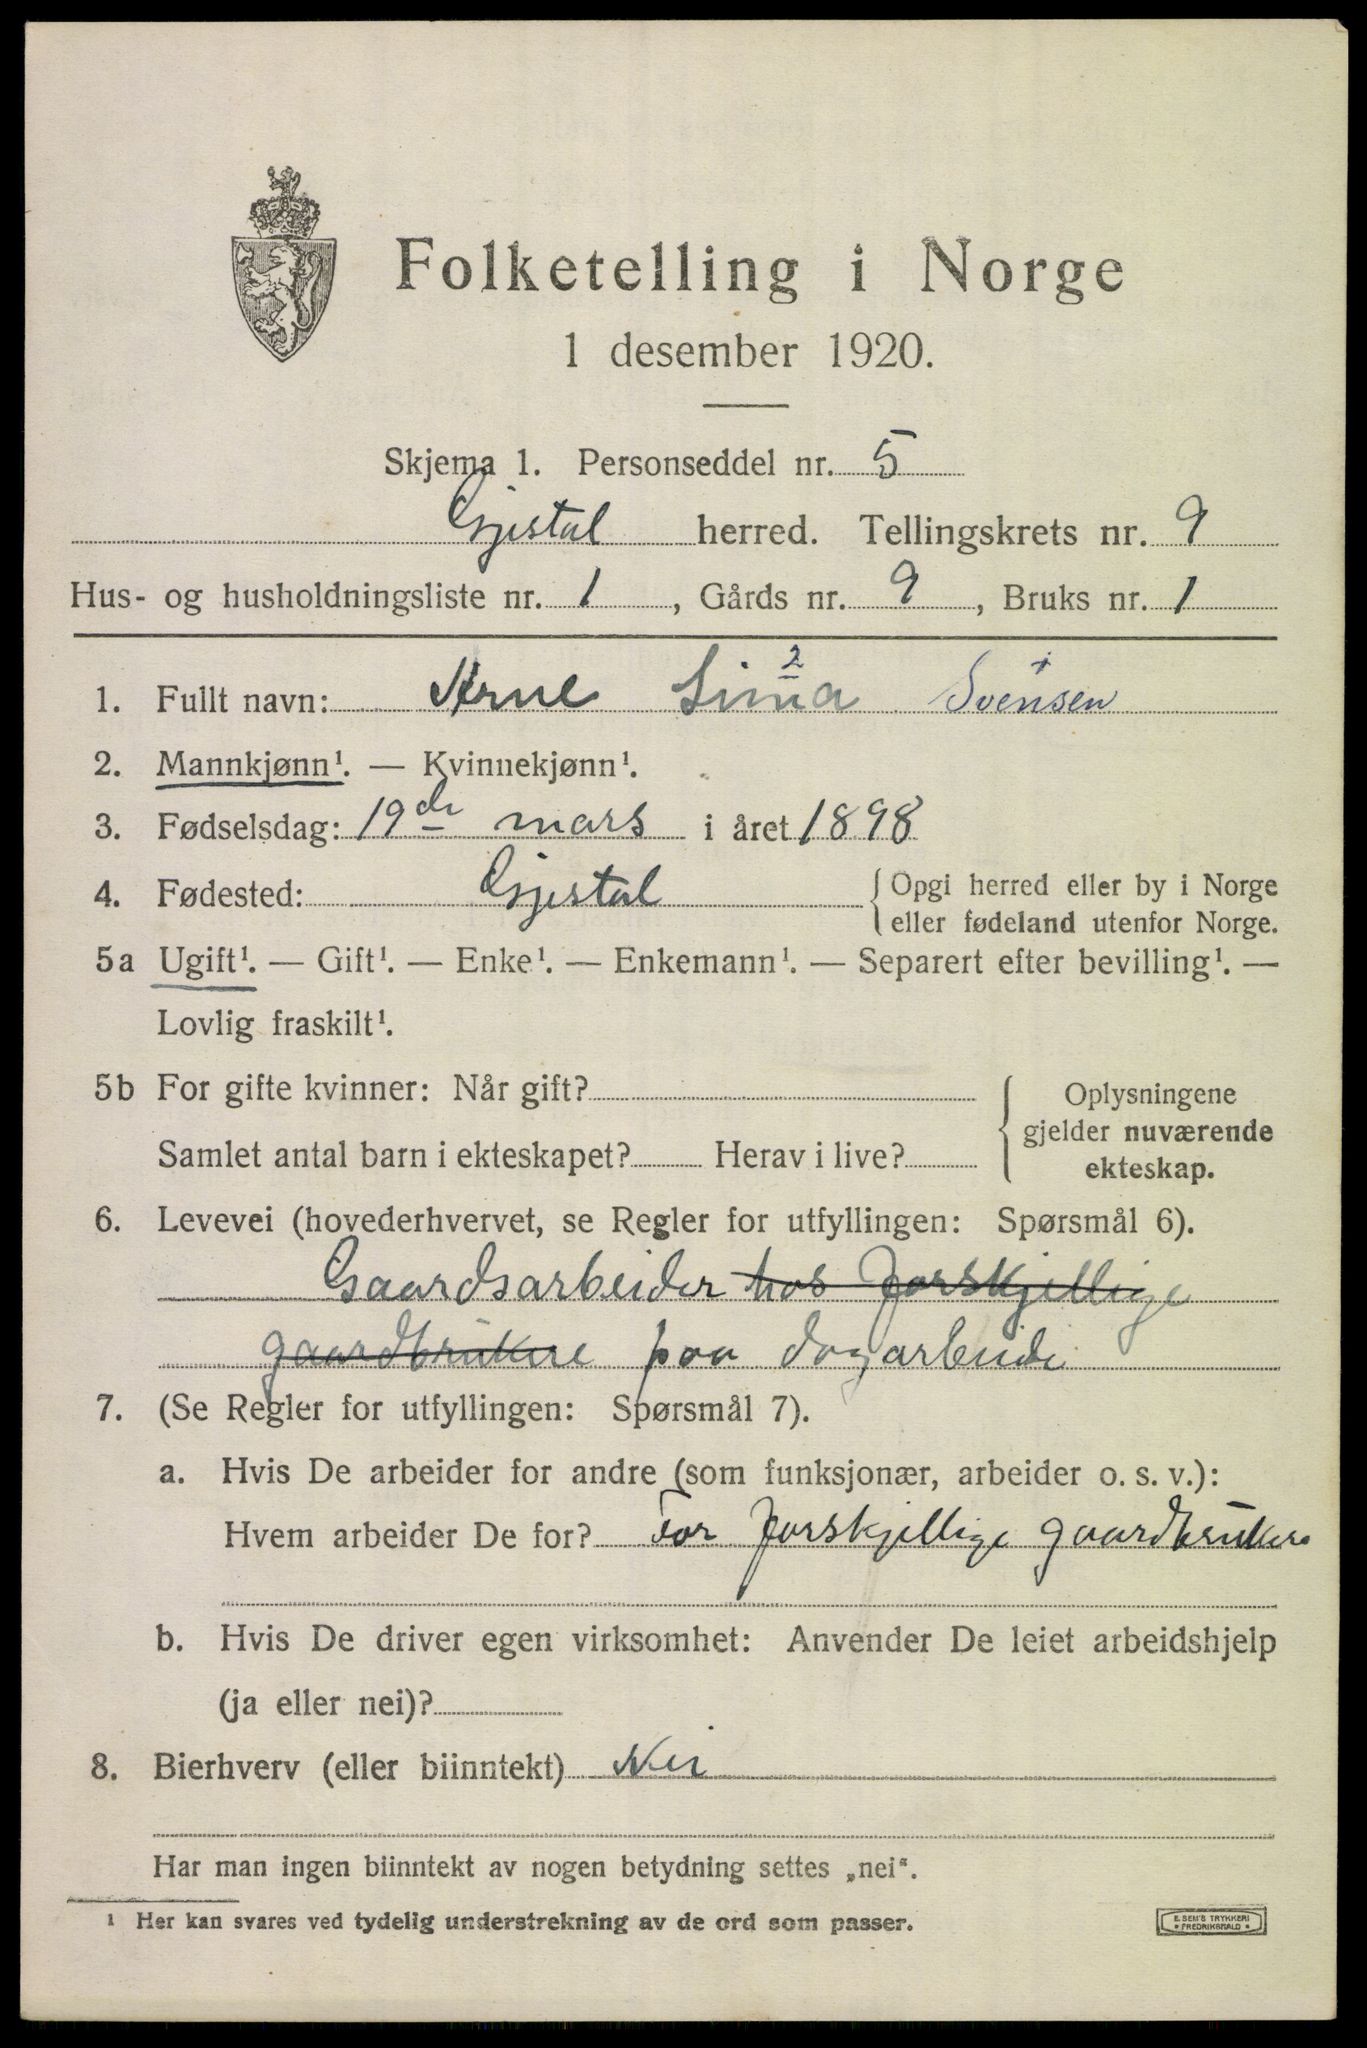 Folketelling i Norge
1 desember 1920.
Skjema 1. Personseddel nr. 5
Gjestal herred. Tellingskrets nr. 9
Hus- og husholdningsliste nr. 1, Gårds nr. 9, Bruks nr. 1
2
1. Fullt navn: Arne Lima Svensen
2. Mannkjønn¹. — Kvinnekjønn¹.
3. Fødselsdag: 19de mars i året 1898
4. Fødested: Gjestal {Opgi herred eller by i Norge
eller fødeland utenfor Norge.
5a Ugift¹. — Gift¹. — Enke¹. — Enkemann¹. — Separert efter bevilling¹. —
Lovlig fraskilt¹.
5b For gifte kvinner: Når gift? Oplysningene
gjelder nuværende
Samlet antal barn i ekteskapet? Herav i live?
ekteskap.
6. Levevei (hovederhvervet, se Regler for utfyllingen: Spørsmål 6).
Gaardsarbeider hos forskjellige
gaardbrukere paa dagarbeide
7. (Se Regler for utfyllingen: Spørsmål 7).
a. Hvis De arbeider for andre (som funksjonær, arbeider o. s. v.):
Hvem arbeider De for? For forskjellige gaardbrukere
b. Hvis De driver egen virksomhet: Anvender De leiet arbeidshjelp
(ja eller nei)?
8. Bierhverv (eller biinntekt) Nei
Har man ingen biinntekt av nogen betydning settes „nei".
¹ Her kan svares ved tydelig understrekning av de ord som passer.
E. SEM'S TRYKKERI
• FREDRIKSHALD •